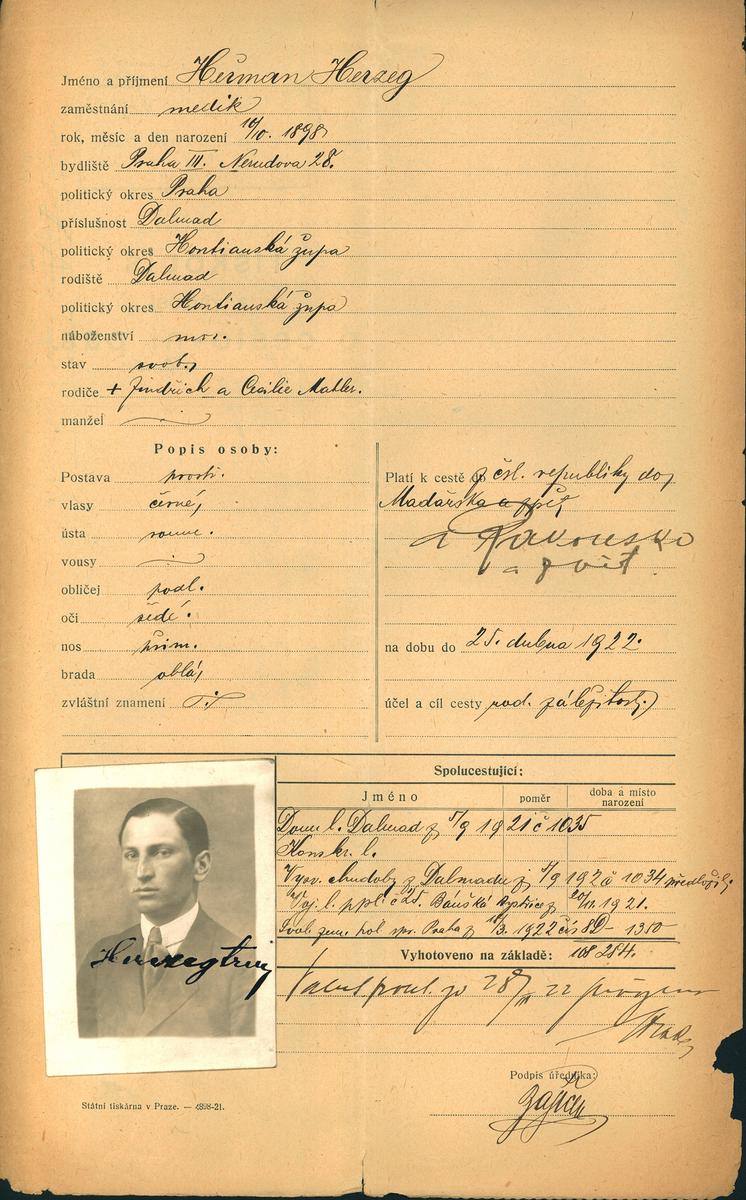 Jméno a příjmení Heřman Herzeg
zaměstnání medik
rok, měsíc a den narození 10/V. 1898
bydliště Praha III. Nerudova 28.
politický okres Praha
příslušnost Dalmad
politický okres Hontianská župa
rodiště Dalmad
politický okres Hontianská župa
náboženství
stav svob.
rodiče + Jindřich a Cecilie Mahler.
manžel
Popis osoby:
Postava prostř.
vlasy černé,
ústa rovné.
vousy
obličej podl.
oči šedé.
nos přim.
brada oblá,
zvláštní znamení
Platí k cestě do z čsl. republiky do
Maďarska a zpět
a Rakouska
a zpět.
na dobu do 25. dubna 1922.
účel a cíl cesty rod. záležitosti
Spolucestující:
Jméno poměr doba a místo narození
Dom. l. Dalmad z 5/9 1921 č 1035
Konskr. l.
Vysv. chudoby z Dalmadu z 5/9 192 č 1034 předložil
Voj. l. ppl. č 25. Báňská Bystřice z 1921.
zem. pol. spr. Praha z 10/3. 1922 čís 8D - 1350
Vyhotoveno na základě: 108284.
28/III 22
Herzeg
Podpis úředníka:
Zajíček
Státní tiskárna v Praze. — 4898-21.